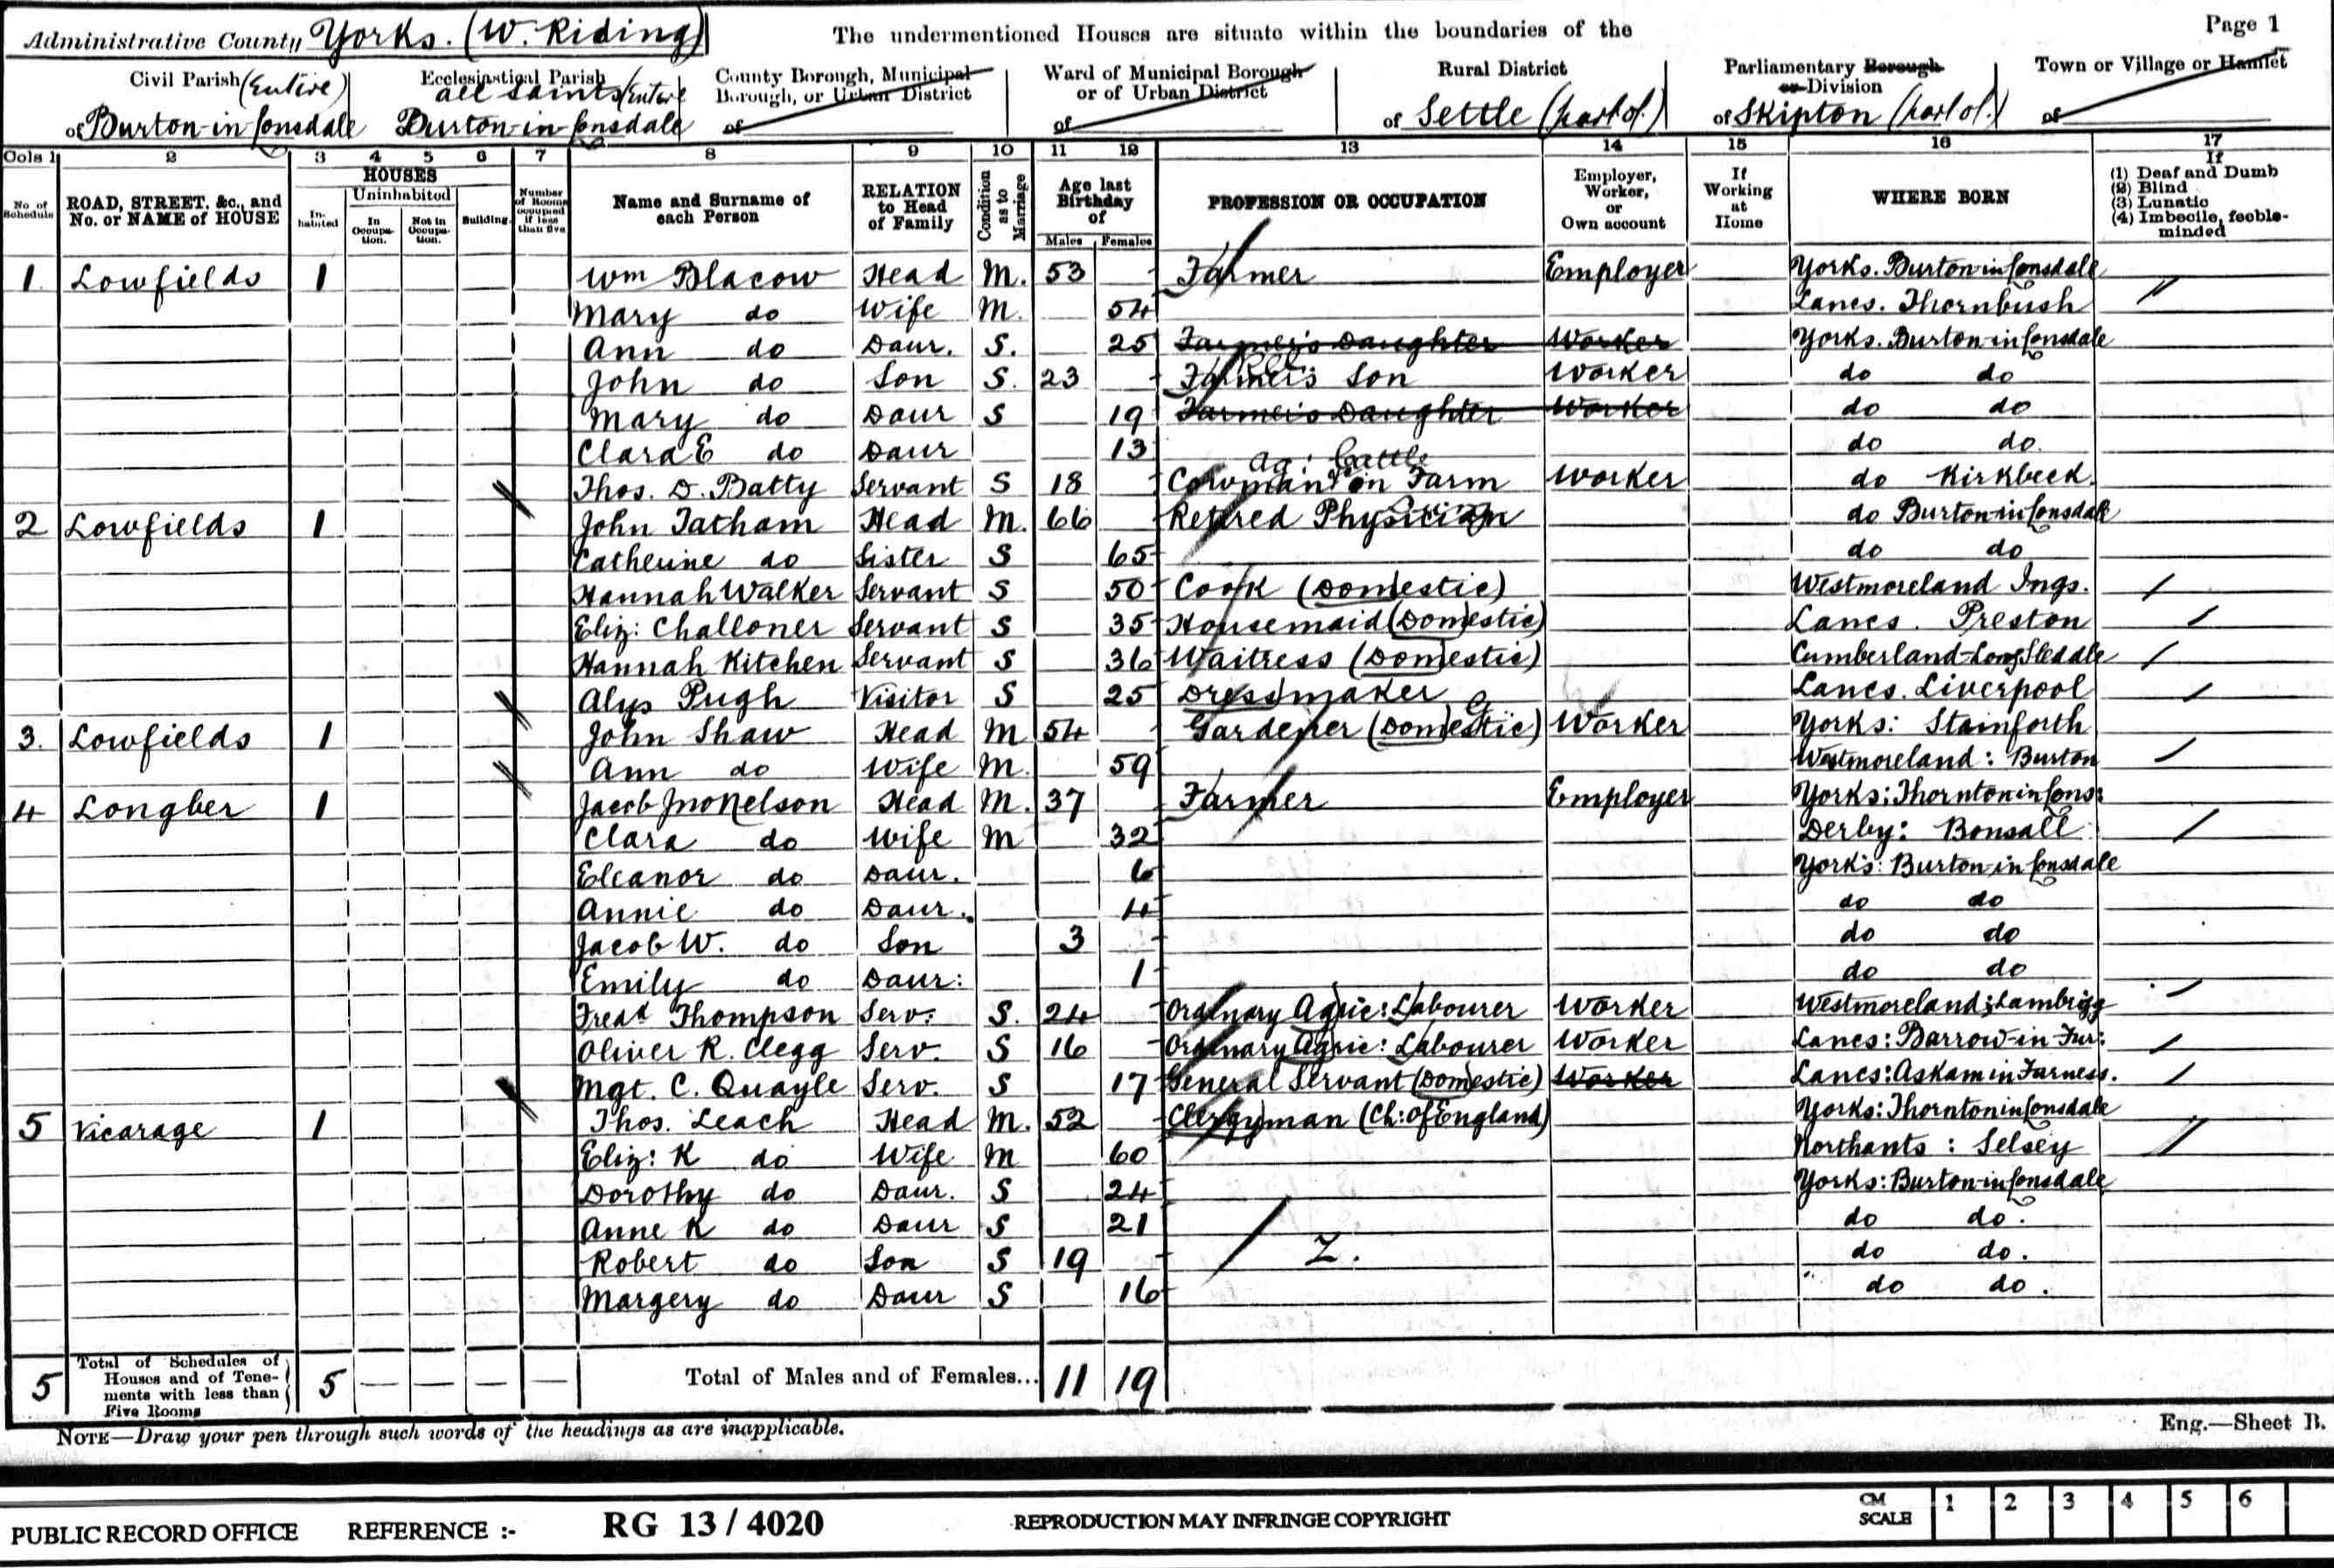 Administrative County Yorks. (W. Riding) The undermentioned Houses are situate within the boundaries of the Page 1
Civil Parish (Entire) Ecclesiastical Parish County Borough, Municipal Ward of Municipal Borough Rural District Parliamentary Borough Town or Village or Hamlet
All Saints (Entire Borough, or Urban District or of Urban District or Division
of Burton-in-Lonsdale Burton-in-Lonsdale of of of Settle (part of.) of Skipton (part of.) of
Cols 1 2 3 4 5 6 7 8 9 10 11 12 13 14 15 16 17
No. of Schedule ROAD, STREET, &c., and No. or NAME of HOUSE HOUSES In-habited Uninhabited In Occupa-tion. Not in Occupa-tion. Building. Number of Rooms occupied if less than five Name and Surname of each Person RELATION to Head of Family Condition as to Marriage Age last Birthday of Males Females PROFESSION OR OCCUPATION Employer, Worker, or Own account If Working at Home WHERE BORN If (1) Deaf and Dumb (2) Blind (3) Lunatic (4) Imbecile, feeble-minded
1. Lowfields 1 Wm Blacow Head M. 53 Farmer Employer Yorks. Burton in Lonsdale
Mary do Wife M. 54 Lancs. Thornbush
Ann do Daur. S. 25 Farmer's Daughter Worker Yorks. Burton-in-Lonsdale
John do Son S. 23 Farmer's Son Worker do do
Mary do Daur S 19 Farmer's Daughter Worker do do
Clara E do Daur 13 do do.
Thos. D. Batty Servant S 18 Cowman on Farm Ag: Cattle Worker do Kirkbeck.
2 Lowfields 1 John Tatham Head M. 66 Retired Physician do Burton-in-Lonsdale
Catherine do Sister S 65 do do
Hannah Walker Servant S 50 Cook (Domestic) Westmoreland Ings.
Eliz: Challoner Servant S 35 Housemaid (Domestic) Lancs. Preston
Hannah Kitchen Servant S 36 Waitress (Domestic) Cumberland-Long Sleddale
Alys Pugh Visitor S 25 Dressmaker Lancs. Liverpool
3. Lowfields 1 John Shaw Head M 54 Gardener (Domestic) Worker Yorks: Stainforth
Ann do Wife M. 59 Westmoreland: Burton
4 Longber 1 Jacob Jno Nelson Head M. 37 Farmer Employer Yorks: Thornton in Lons:
Clara do Wife M 32 Derby: Bonsall
Eleanor do Daur. 6 Yorks: Burton-in Lonsdale
Annie do Daur. 4 do do
Jacob W. do Son 3 do do
Emily do Daur: 1 do do
Fredd Thompson Serv: S. 24 Ordinary Agric: Labourer Worker Westmoreland: Lambrigg
Oliver R. Clegg Serv. S 16 Ordinary Agric: Labourer Worker Lancs: Barrow-in-Fur:
Mgt. C. Quayle Serv. S 17 General Servant (Domestic) Worker Lancs: Askam in Furness.
5 Vicarage 1 Thos. Leach Head M. 52 Clergyman (Ch: of England) Yorks: Thornton in Lonsdale
Eliz: K do Wife M 60 Northants: Selsey
Dorothy do Daur. S 24 Yorks: Burton-in Lonsdale
Anne K do Daur S 21 do do.
Robert do Son S 19 Z. do do.
Margery do Daur S 16 do do.
5 Total of Schedules of Houses and of Tene-ments with less than Five Rooms 5 — — — — Total of Males and of Females... 11 19
NOTE—Draw your pen through such words of the headings as are inapplicable. Eng.—Sheet B.
PUBLIC RECORD OFFICE REFERENCE :- RG 13 / 4020 REPRODUCTION MAY INFRINGE COPYRIGHT CM SCALE 1 2 3 4 5 6